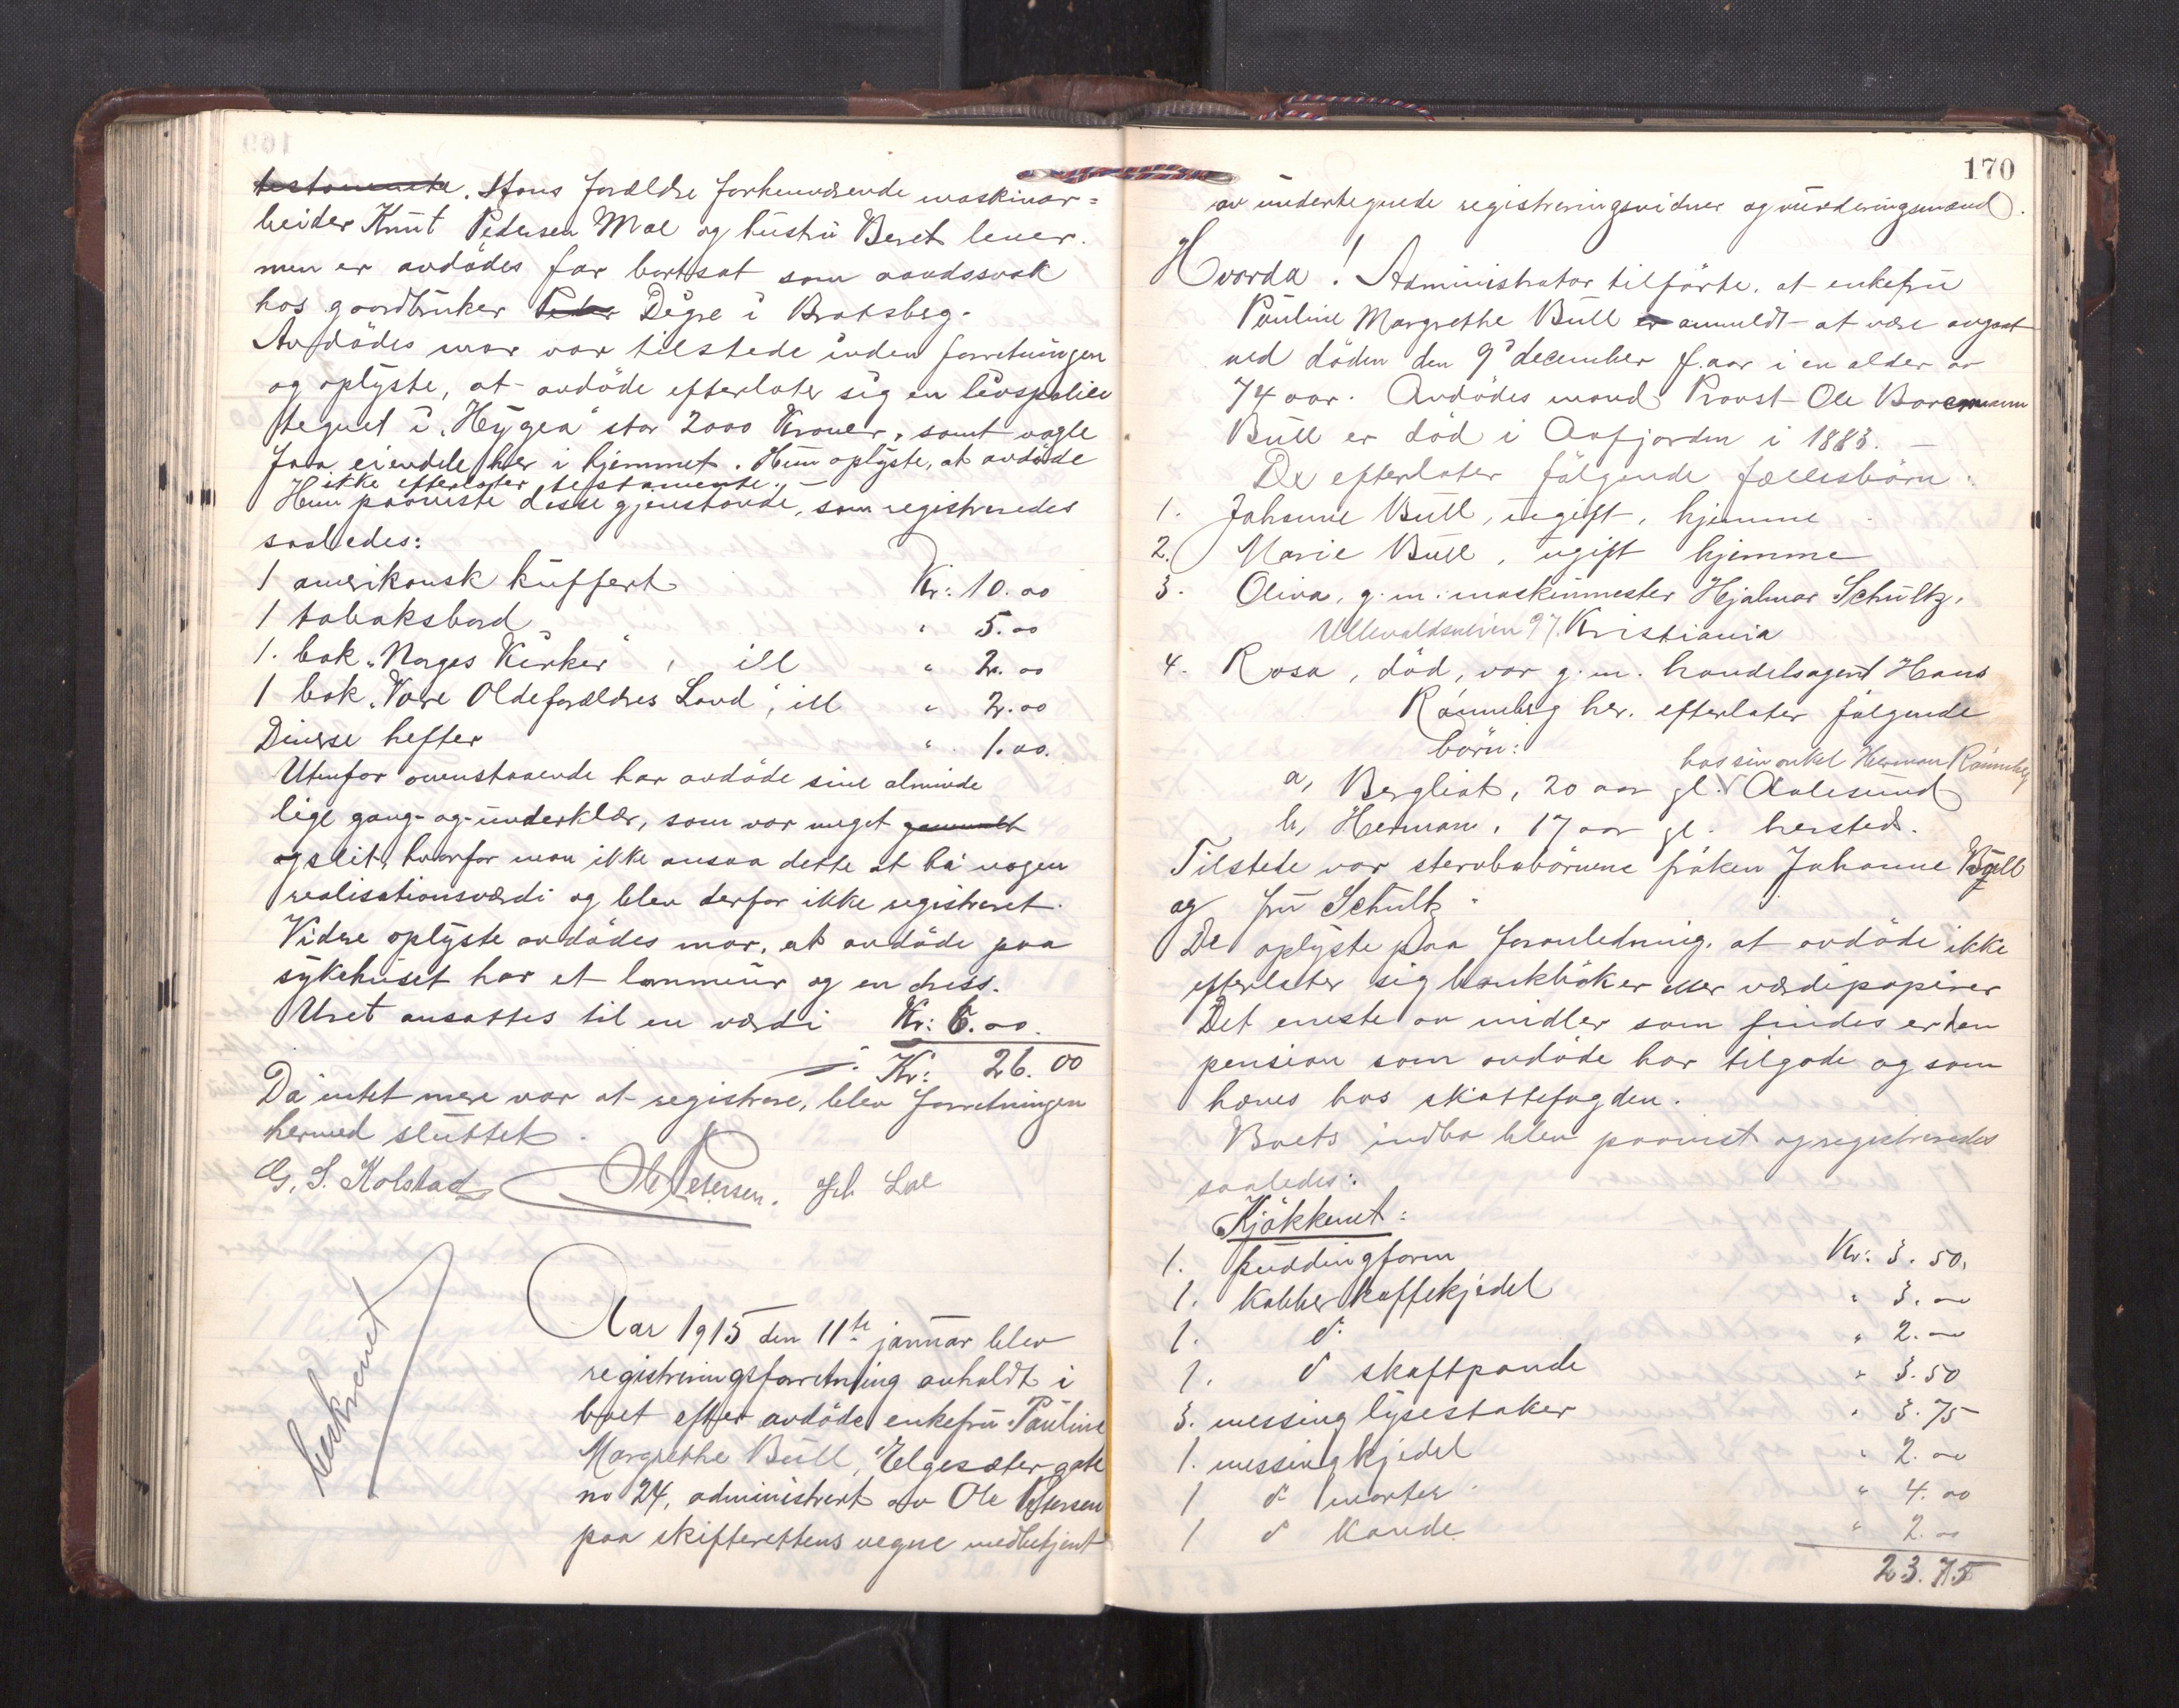 testamente. Hans forældre forhenværende maskinar=
beider Knut Pedersen Moe og hustru Beret lever.
men er avdödes far bortsat som aandssvak
hos gaardbruker Peder Digre i Bratsberg.
Avdödes mor var tilstede under forretningen
og oplyste, at avdöde efterlater sig en livspolice
tegnet i „Hygea" stor 2000 Kroner, samt nogle
faa eiendele her i hjemmet. Hun oplyste, at avdöde
ikke efterlater testamente. —
Hun paaviste disse gjenstande, som registreredes
saaledes:
1 amerikansk kuffert Kr: 10.00
1 tobaksbord " 5.00
1. bok „Norges Kirker", ill " 2.00
1 bok „Vore Oldeforældres Land", ill " 2.00
Diverse hefter " 1.00.
Utenfor ovenstaaende har avdöde sine alminde
lige gang- og underklær, som var meget gammelt
og slit, hvorfor man ikke ansaa dette at ha nogen
realisationsværdi og blev derfor ikke registreret.
Videre oplyste avdödes mor, at avdöde paa
sykehuset har et lommeur og en dress.
Uret ansattes til en værdi Kr: 6.00.
Kr: 26.00
Da intet mere var at registrere, blev forretningen
hermed sluttet.
G. S. Kolstad Ole Petersen.
beskrevet
Aar 1915 den 11te januar blev
registreringsforretning avholdt i
boet efter avdöde enkefru Pauline
Margrethe Bull, Elgesæter gate
no 24, administrert av Ole Petersen
paa skifterettens vegne medbetjent
170
av undertegnede registreringsvidner og vurderingsmænd.
Hvorda! Administrator tilförte, at enkefru
Pauline Margrethe Bull er anmeldt at være avgaat
ved döden den 9' december f. aar i en alder av
74 aar. Avdödes mand Provst Ole Bornemann
Bull er död i Aafjorden i 1883. —
De efterlater fölgende fællesbörn:
1. Johanne Bull, ugift, hjemme
2. Marie Bull, ugift hjemme
3. Oliva, g. m. maskinmester Hjalmar Schultz,
Ullevaldsveien 97. Kristiania
4. Rosa, död, var g. m. handelsagent Hans
Rönneberg her. efterlater fölgende
börn:
hos sin onkel Herman Rönneberg
a, Bergliot, 20 aar gl. Aalesund
b, Herman, 17 aar gl. hersteds.
Tilstede var stervbobörnene fröken Johanne Bull
og fru Schultz.
De oplyste paa foranledning, at avdöde ikke
efterlater sig bankböker eller værdipapirer
Det eneste av midler som findes er den
pension som avdöde har tilgode og som
hæves hos skattefogden.
Boets indbo blev paavist og registreredes
saaledes:
Kjökkenet:
1. puddingform Kr: 3.50.
1. Kobber kaffekjedel " 3.00
1. do " 2.00
1. do skaftpande " 3.50
3. messing lysestaker " 3.75
1. messingkjedel " 2.00
1 do morter " 4.00
1 do Kande " 2.00
23.75